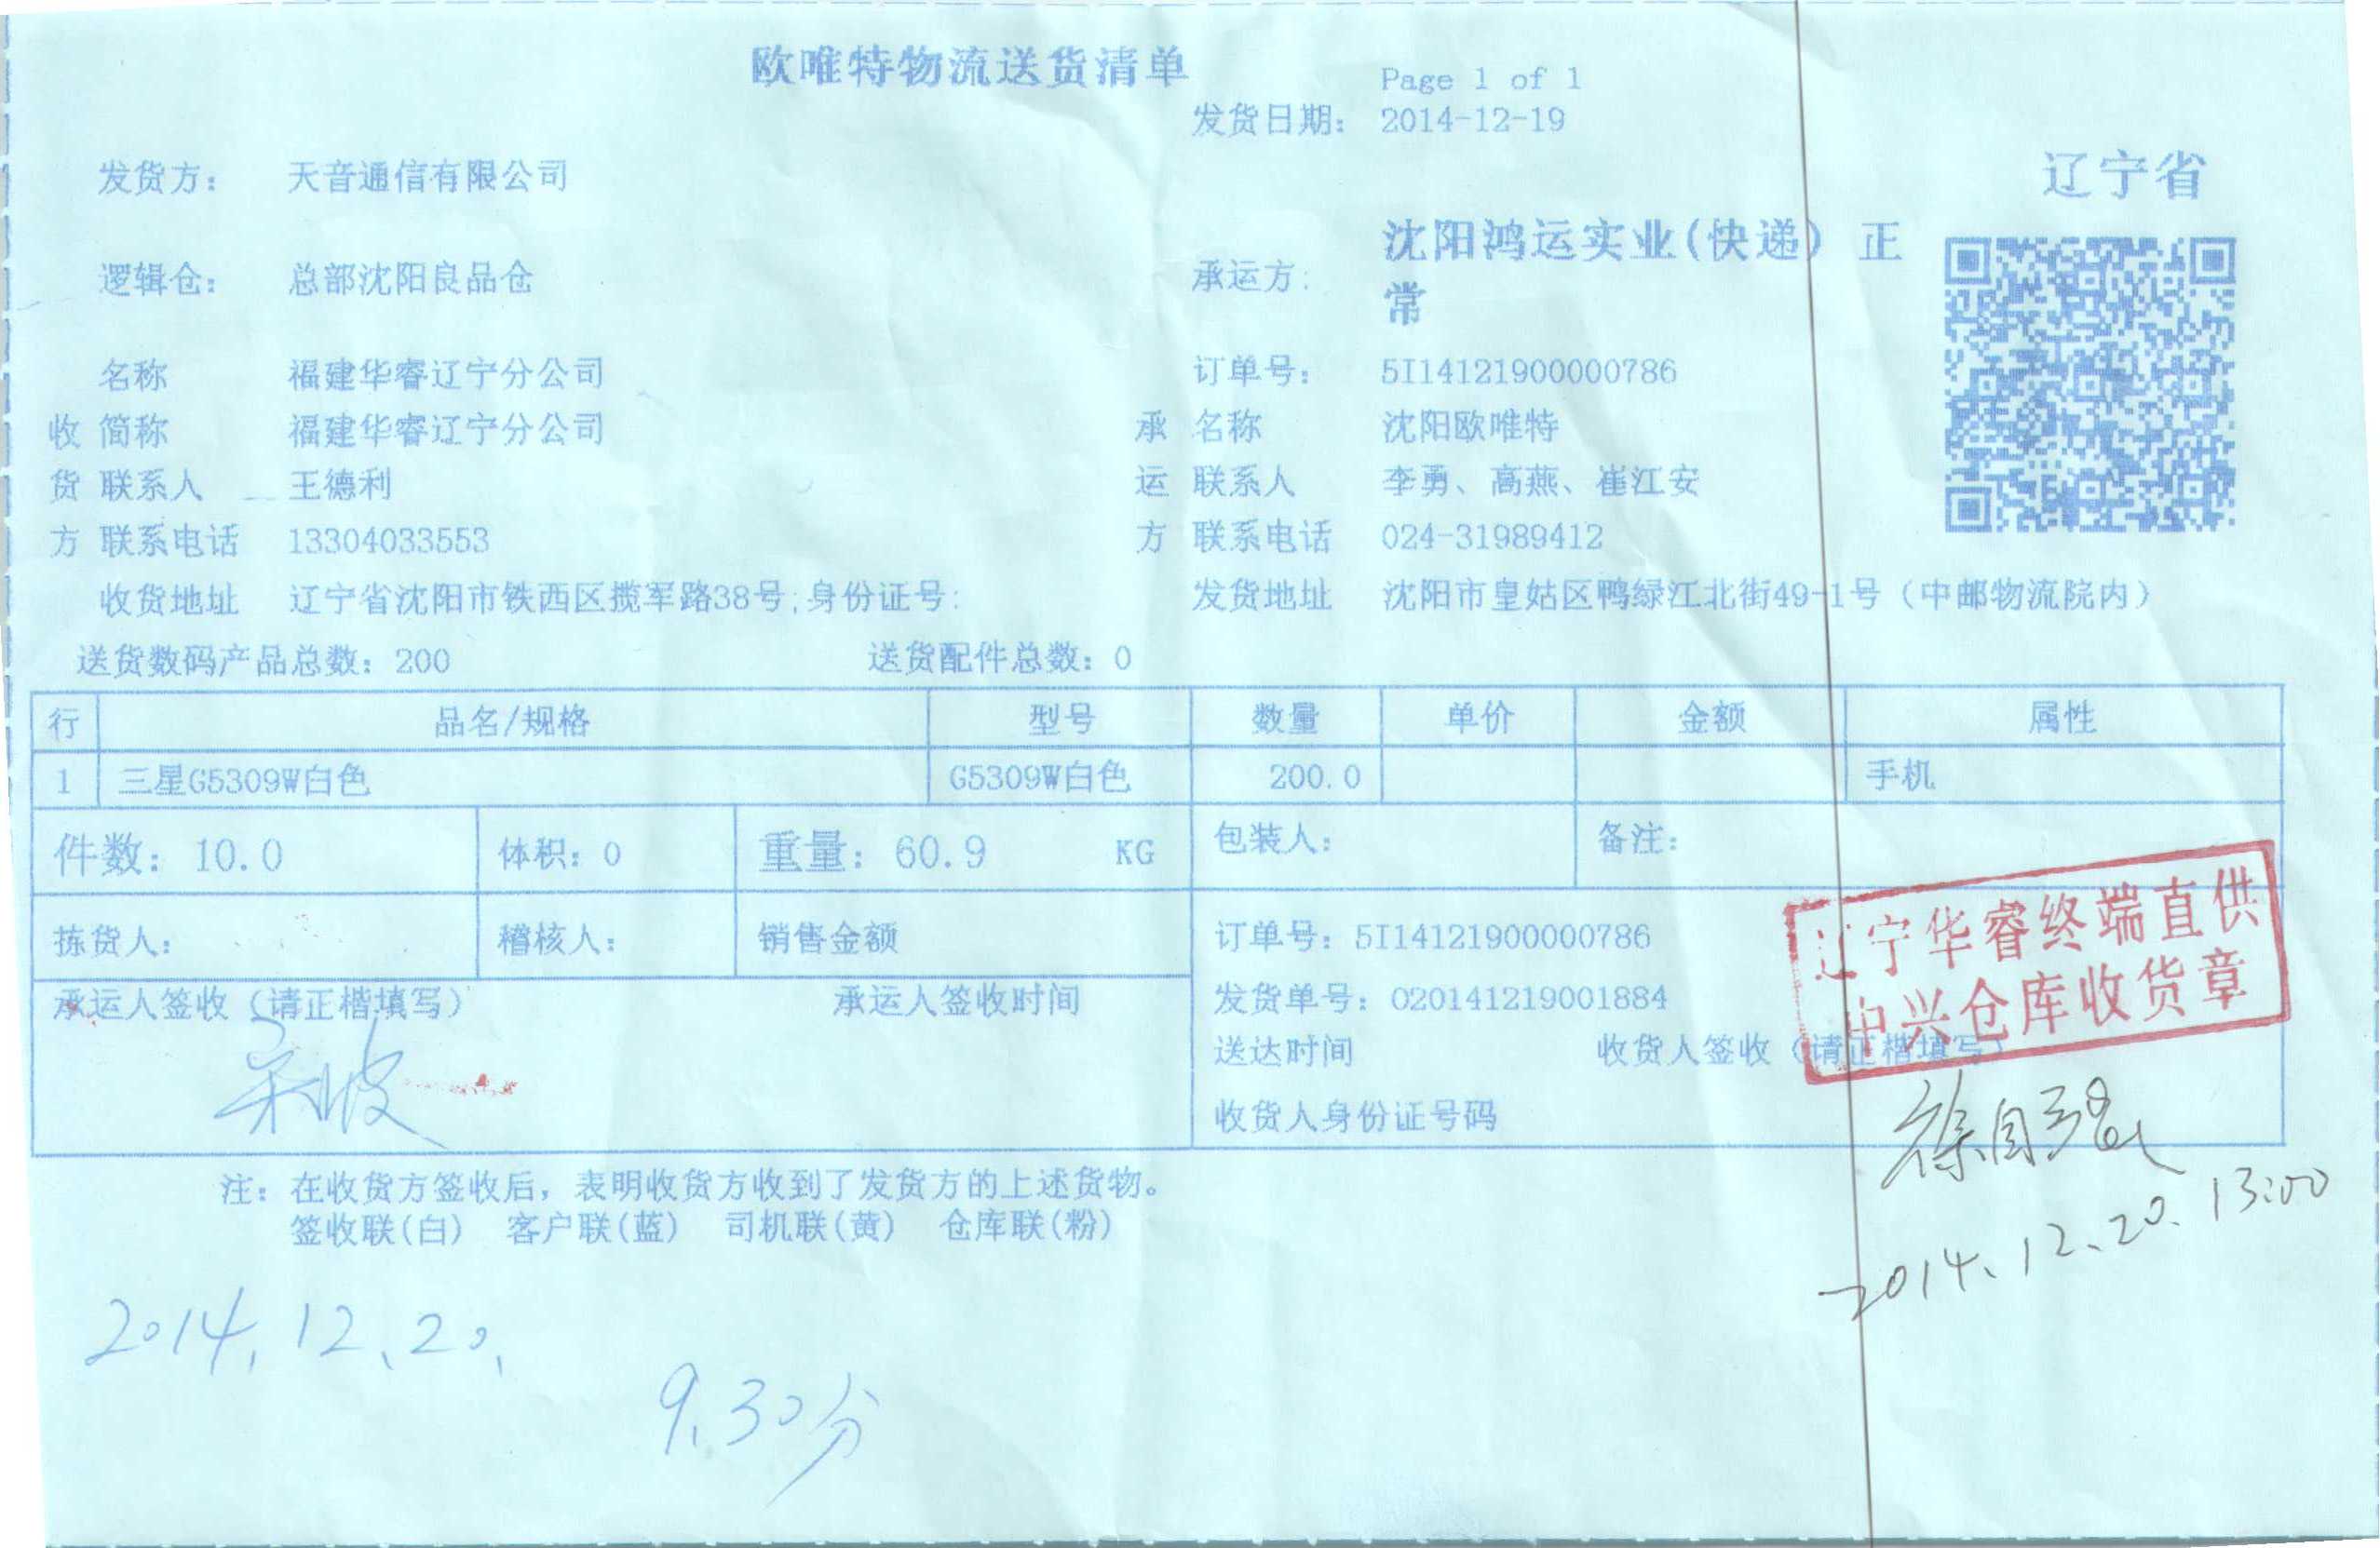 欧唯特物流送货清单
Page 1 of 1
发货日期: 2014-12-19
辽宁省
发货方: 天音通信有限公司
逻辑仓: 总部沈阳良品仓
承运方: 沈阳鸿运实业(快递) 正
常
名称 福建华睿辽宁分公司 订单号: 5I14121900000786
收 简称 福建华睿辽宁分公司 承 名称 沈阳欧唯特
货 联系人 王德利 运 联系人 李勇、高燕、崔江安
方 联系电话 13304033553 方 联系电话 024-31989412
收货地址 辽宁省沈阳市铁西区揽军路38号;身份证号: 发货地址 沈阳市皇姑区鸭绿江北街49-1号（中邮物流院内）
送货数码产品总数: 200 送货配件总数: 0
行 品名/规格 型号 数量 单价 金额 属性
1 三星G5309W白色 G5309W白色 200.0 手机
件数: 10.0 体积: 0 重量: 60.9 KG 包装人: 备注:
拣货人: 稽核人: 销售金额 订单号: 5I14121900000786
辽宁华睿终端直供
中兴仓库收货章
承运人签收（请正楷填写） 承运人签收时间 发货单号: 020141219001884
送达时间 收货人签收（请正楷填写）
收货人身份证号码
徐自强
2014.12.20. 13:00
注: 在收货方签收后，表明收货方收到了发货方的上述货物。
签收联(白) 客户联(蓝) 司机联(黄) 仓库联(粉)
2014.12.20.
9.30分